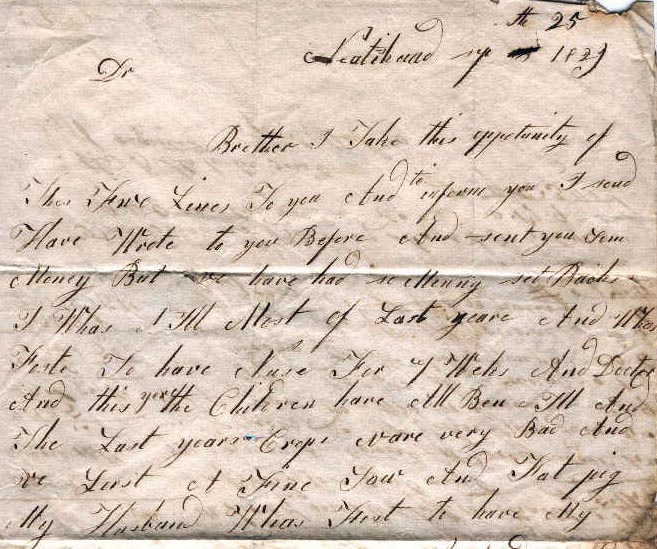 th 25
1829
Dr
Brother I Take this oppotunity of
This Fwe Lines To you And to inform you I send
Have Wrote to you Before And sent you Som
Money But we have had so Menny set Backs
I Whas Ill Most of Last yeare And Whas
Foste To have Nuse For 7 Weks And Doctor
And this year the Children have All Ben Ill And
The Last years Crops ware very Bad And
we Lost A Fine Sow And Fat pig
My Husband Whas Fost to have My